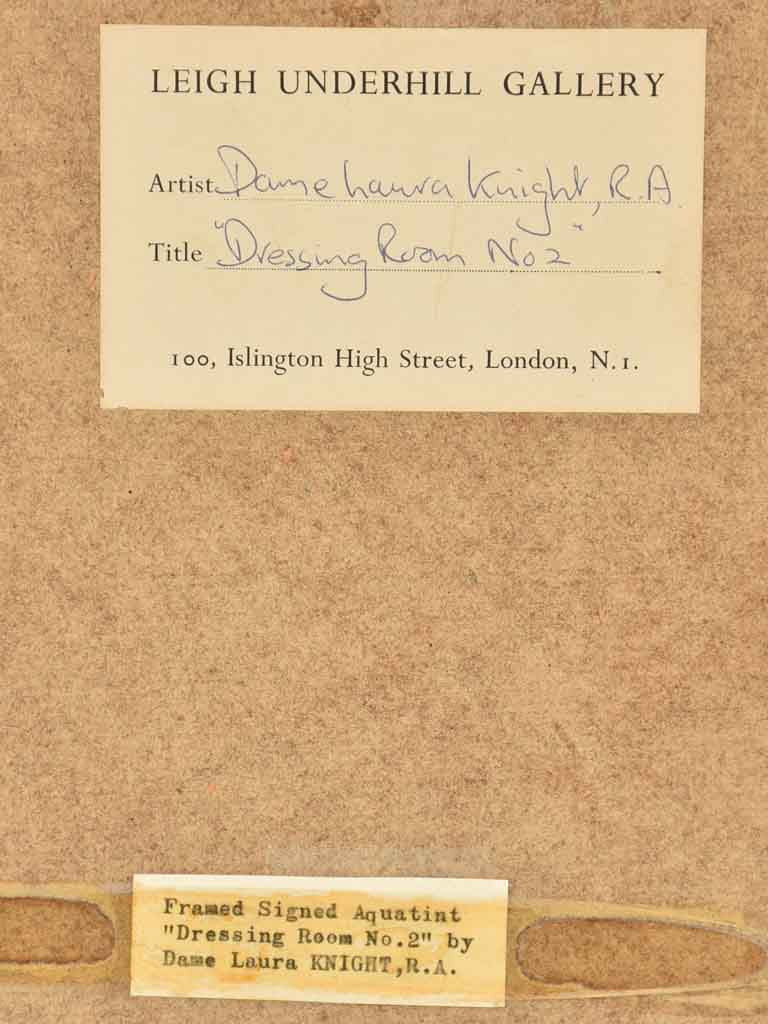 LEIGH UNDERHILL GALLERY
Artist Dame Laura Knight, R.A.
Title "Dressing Room No 2"
100, Islington High Street, London, N.1.
Framed Signed Aquatint
"Dressing Room No.2" by
Dame Laura KNIGHT,R.A.